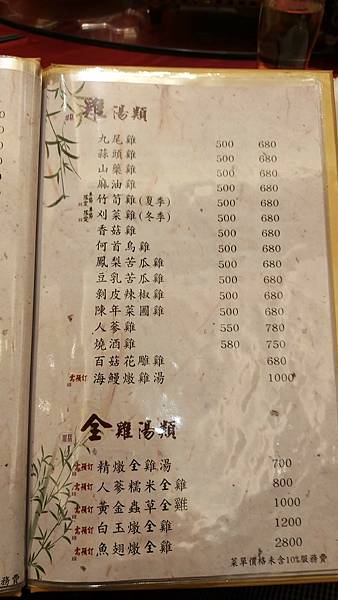 雞湯類
九尾雞 500 680
蒜頭雞 500 680
山藥雞 500 680
麻油雞 500 680
竹筍雞(夏季) 500 680
刈菜雞(冬季) 500 680
香菇雞 500 680
何首烏雞 500 680
鳳梨苦瓜雞 500 680
豆乳苦瓜雞 500 680
剝皮辣椒雞 500 680
陳年菜圃雞 500 680
人蔘雞 550 780
燒酒雞 580 750
百菇花雕雞 680
需預訂 海鰻燉雞湯 1000
全雞湯類
需預訂 精燉全雞湯 700
需預訂 人蔘糯米全雞 800
需預訂 黃金蟲草全雞 1000
需預訂 白玉燉全雞 1200
需預訂 魚翅燉全雞 2800
菜單價格未含10%服務費
務費